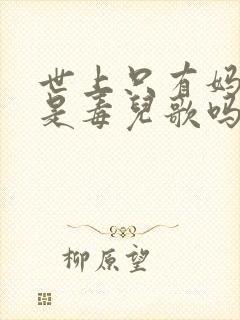 世上只有妈
是毒兒歌吗
柳原望